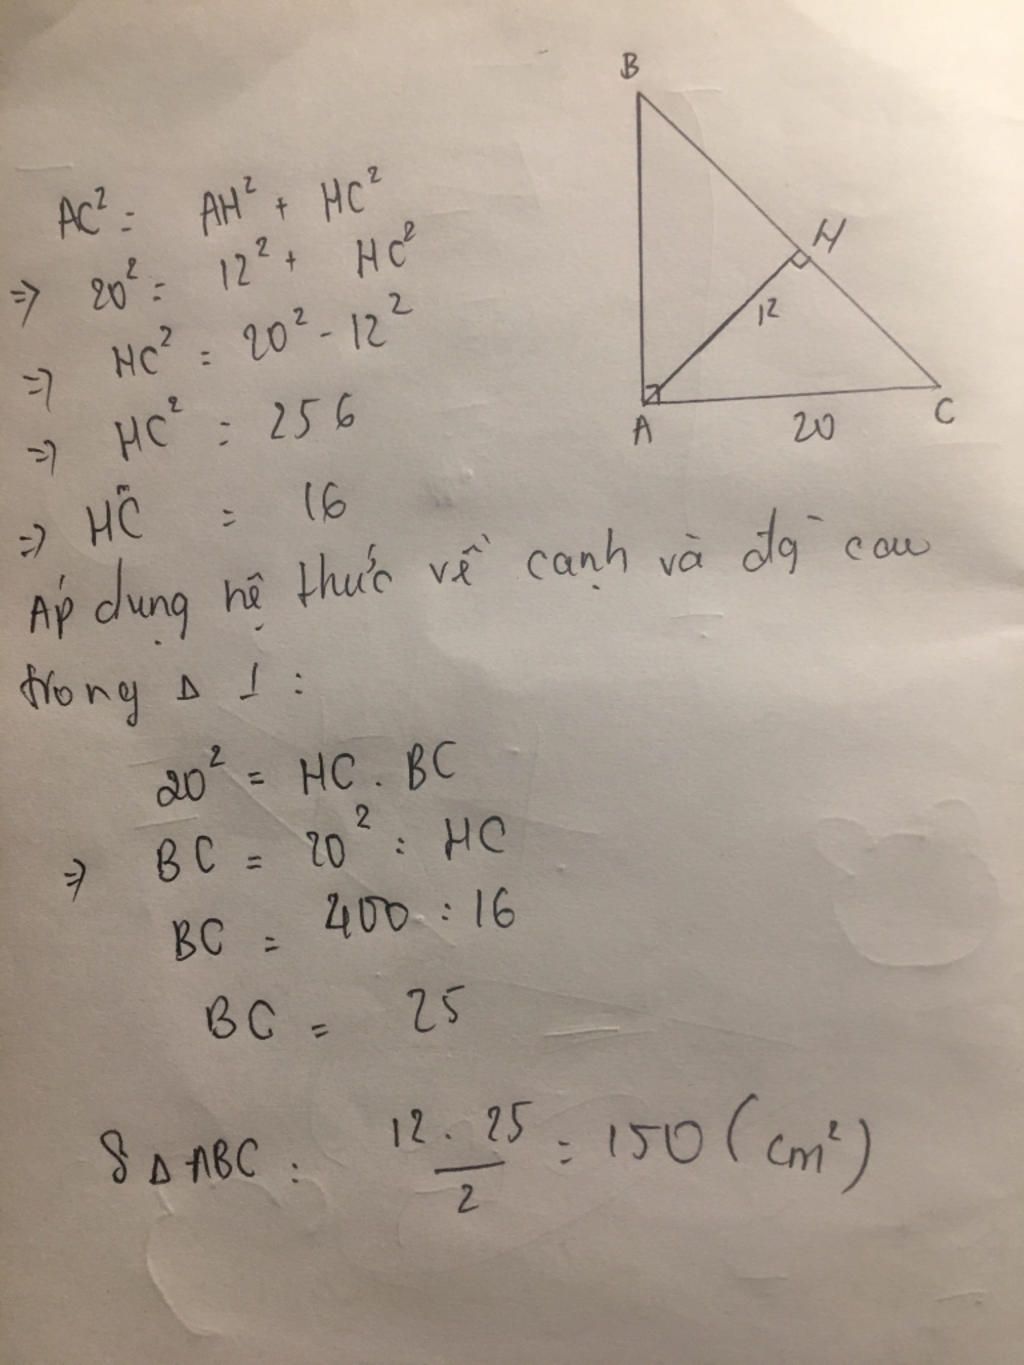 AC² = AH² + HC²
=> 20² = 12² + HC²
=> HC² = 20² - 12²
=> HC² = 256
=> HC = 16
Áp dụng hệ thức về cạnh và đg cao
trong Δ ⊥ :
20² = HC . BC
=> BC = 20² : HC
BC = 400 : 16
BC = 25
S Δ ABC : 12 . 25 / 2 = 150 (cm²)
B
H
12
A
20
C